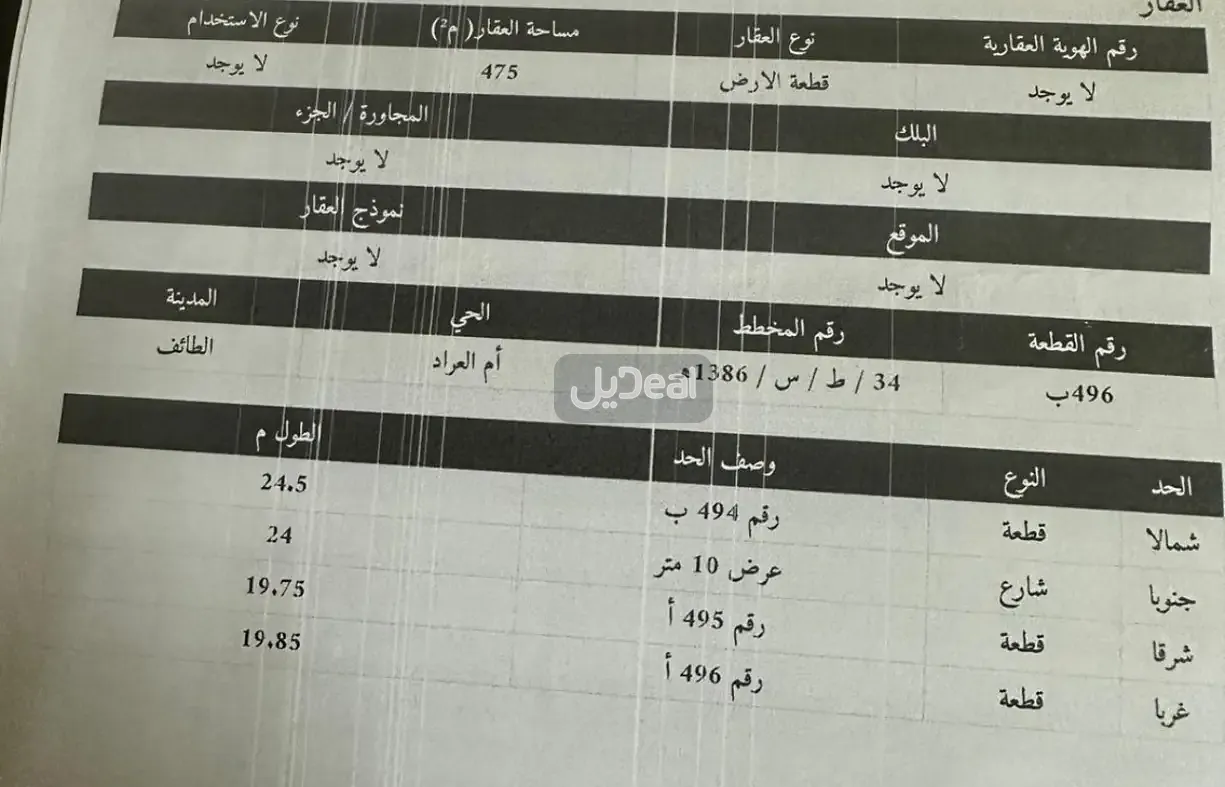 العقار
رقم الهوية العقارية نوع العقار مساحة العقار( م²) نوع الاستخدام
لا يوجد قطعة الارض 475 لا يوجد
البلك المجاورة / الجزء
لا يوجد لا يوجد
الموقع نموذج العقار
لا يوجد لا يوجد
رقم القطعة رقم المخطط الحي المدينة
496ب 34 / ط / س / 1386ه أم العراد الطائف
ديل Deal
الحد النوع وصف الحد الطول م
شمالا قطعة رقم 494 ب 24.5
جنوبا شارع عرض 10 متر 24
شرقا قطعة رقم 495 أ 19.75
غربا قطعة رقم 496 أ 19.85